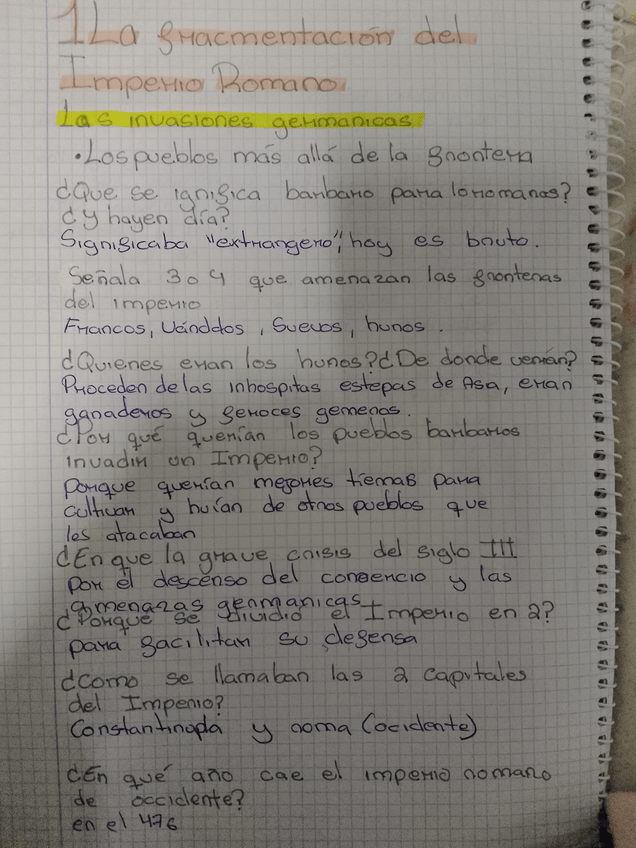 1 La fracmentación del
Imperio Romano
Las invasiones germanicas
• Los pueblos más allá de la frontera
¿Que se ignifica barbaro para loromanos?
¿y hayen día?
Significaba "extrangero", hoy es bruto.
Señala 3 o 4 que amenazan las fronteras
del imperio
Francos, Vánddos, Suevos, hunos.
¿Quienes eran los hunos? ¿De donde venían?
Proceden de las inhospitas estepas de Asa, eran
ganaderos y feroces gerreros.
¿Por qué querían los pueblos barbaros
invadir un Imperio?
porque querían mejores tierras para
cultivar y huían de otros pueblos que
les atacaban
¿En que la grave crisis del siglo III
por el descenso del comercio y las
amenazas germanicas
¿Porque se dividio el Imperio en 2?
para facilitar su defensa
¿como se llamaban las 2 capitales
del Imperio?
Constantinopla y roma (ocidente)
¿En qué año cae el imperio romano
de occidente?
en el 476